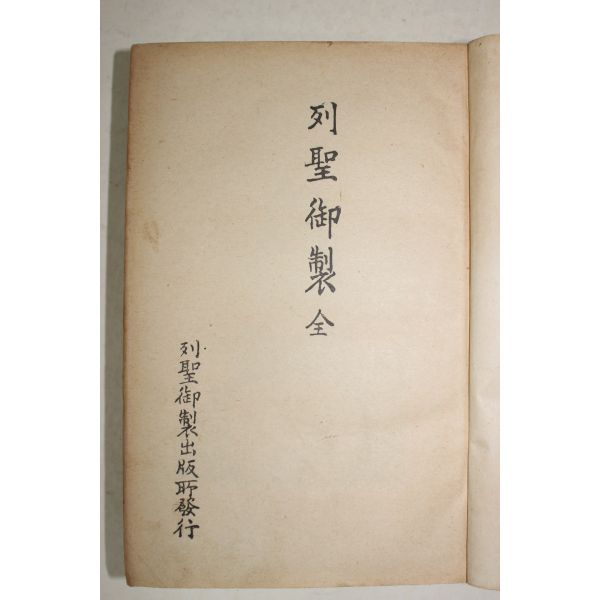 列聖御製 全
列聖御製出版所發行